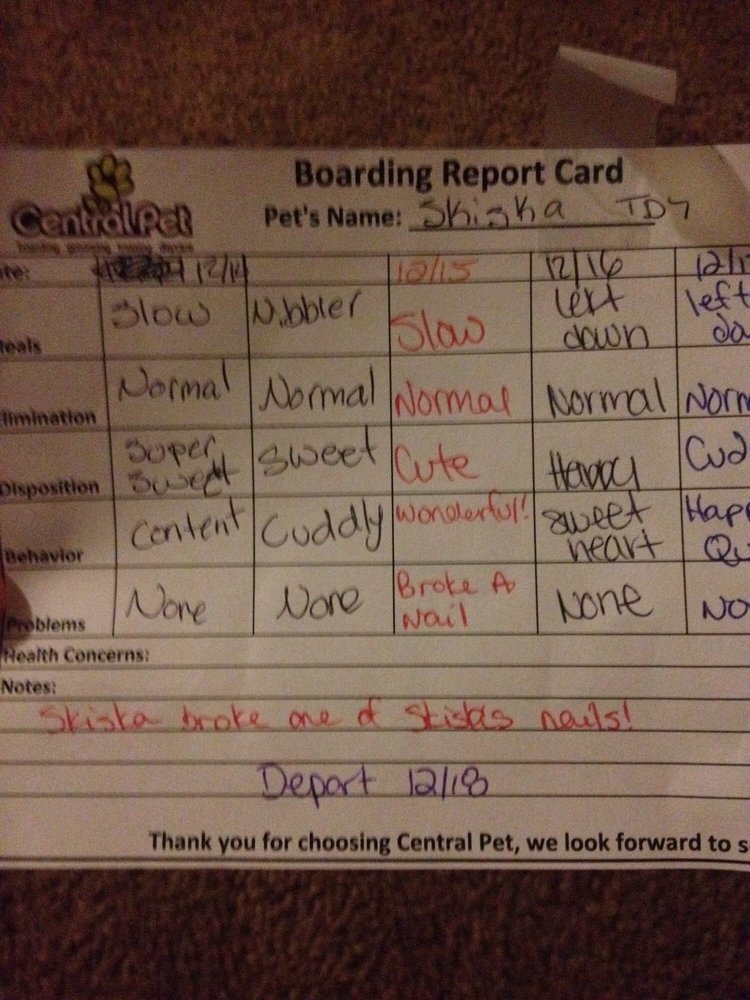 Boarding Report Card
Central Pet
Pet's Name: Skiska TD7
ate: 12/14 12/15 12/16 12/1
eals Slow Nibbler Slow left down left da
limination Normal Normal Normal Normal Norm
Disposition Super Sweet Sweet Cute Happy Cud
Behavior Content Cuddly Wonderful! Sweet heart Happ Qu
Problems None None Broke A Nail None No
Health Concerns:
Notes:
Skiska broke one of Skiska's nails!
Depart 12/18
Thank you for choosing Central Pet, we look forward to s